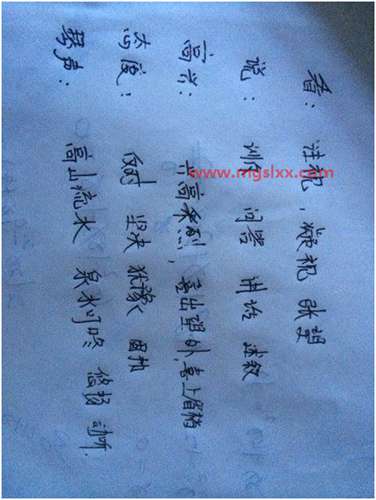 看：注视，凝视 张望
说： 问答 讲话 述叙
高兴：兴高采烈，喜出望外，喜上眉梢
态度：反对 坚决 犹豫
琴声：高山流水 泉水叮咚 悠扬 动听.
www.mgslxx.com